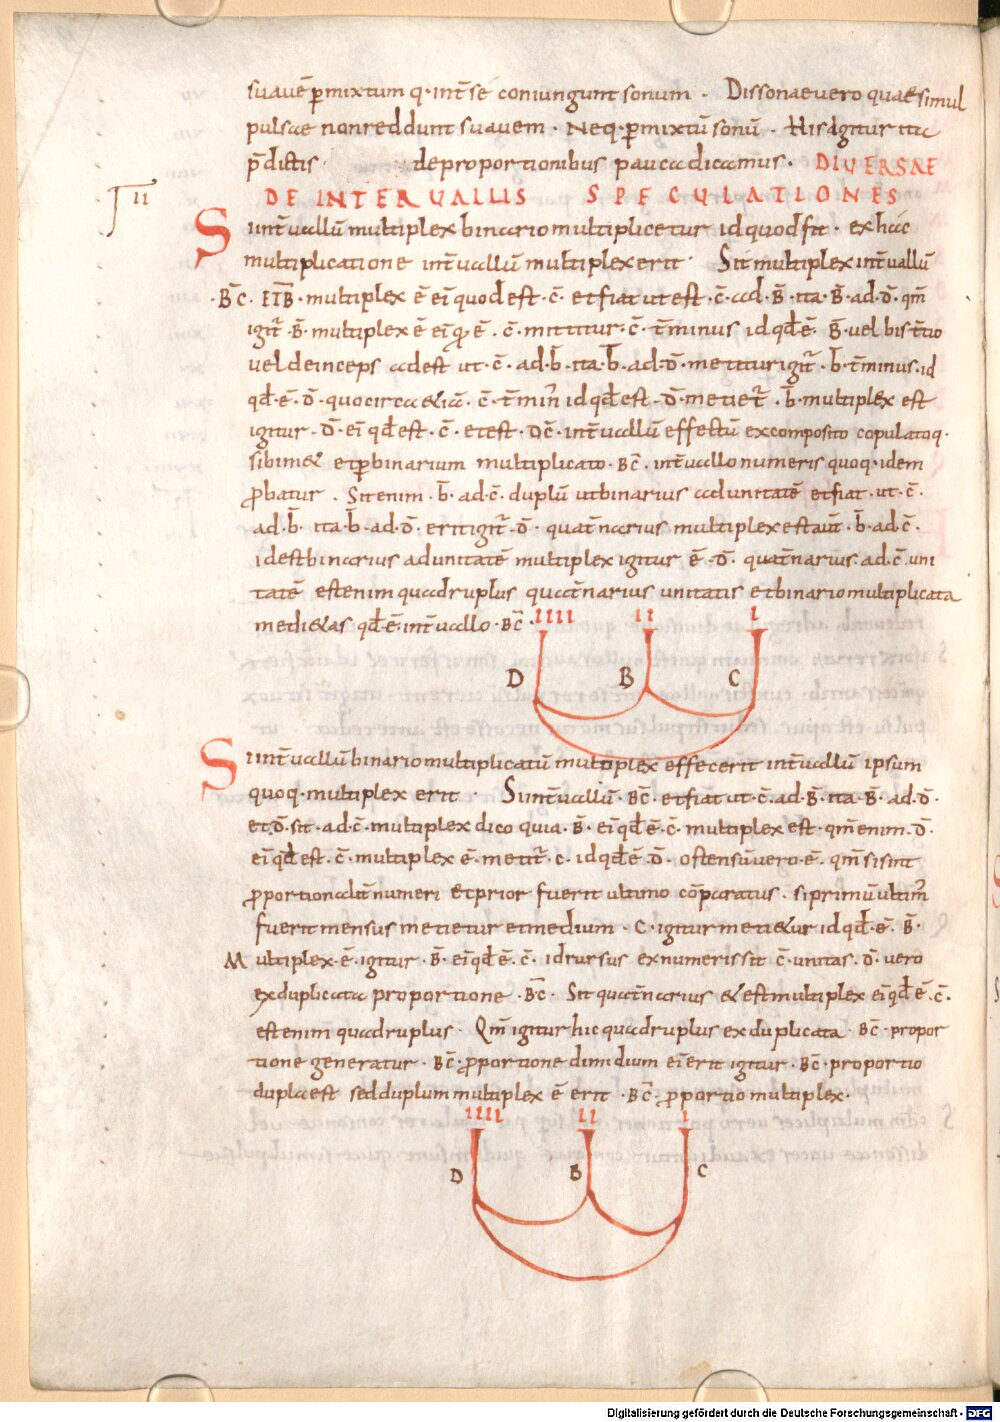 suauē p̄mixtum q· int̄ sé coniungunt sonum · Dissonae uero quae simul
pulsae non reddunt suauem · Neq· p̄mixtū sonū · His igitur ita
p̄dictis de proportionibus pauca dicamus · DIUERSAE
II DE INTERUALLIS SPECULATIONES
Si int̄uallū multiplex binario multiplicetur id quod fit · ex hac
multiplicatione int̄uallū multiplex erit · Sit multiplex int̄uallū
· B̄C̄ · ET B̄ · multiplex ē ei quod est · C̄ · et fiat ut est · C̄ · ad · B̄ · ita · B̄ · ad · D̄ · qm̄
igit̄ · B̄ · multiplex ē ei q̄ ē · C̄ · mittitur · C̄ · t̄minus id qđ ē · B̄ · uel bis t̄uo
uel deinceps adest ut · C̄ · ad · b̄ · ita · b̄ · ad · D̄ · metitur igit̄ · b̄ · t̄minus · id
qđ · ē · D̄ · quocirca & iā · C̄ · t̄min̄ id qđ est · D̄ · metiet̄ · b̄ · multiplex est
igitur · D̄ · ei qđ est · C̄ · et est · D̄C̄ · int̄uallū effectū ex composito copulatoq·
sibim& et p̄ binarium multiplicato · B̄C̄ · int̄uallo numeris quoq· idem
probatur · Sit enim · b̄ · ad · C̄ · duplū ut binarius ad unitatē et fiat · ut · C̄ ·
ad · b̄ · ita · b̄ · ad · D̄ · erit igit̄ · D̄ · quat̄narius multiplex est aūt · b̄ · ad · C̄ ·
id est binarius ad unitatē multiplex igitur ē · D̄ · quat̄narius · ad · C̄ · uni
tatē est enim quadruplus quat̄narius unitatis et binario multiplicata
medi&as qđ · ē · int̄uallo · B̄C̄ ·
IIII II I
D B C
Si int̄uallū binario multiplicatū multiplex effecerit int̄uallū ipsum
quoq· multiplex erit · Si int̄uallū · B̄C̄ · et fiat ut · C̄ · ad · B̄ · ita · B̄ · ad · D̄ ·
et · D̄ · sit · ad · C̄ · multiplex dico quia · B̄ · ei qđ ē · C̄ · multiplex est · qm̄ enim · D̄ ·
ei qđ est · C̄ · multiplex ē · metit̄ · C · id qđ ē · D̄ · ostensū uero · ē · qm̄ si sint
proportionalit̄ numeri et prior fuerit ultimo cōparatus · si primū ultim̄
fuerit mensus metietur et medium · C · igitur meti&ur id qđ · ē · B̄ ·
Multiplex · ē · igitur · B̄ · ei qđ ē · C̄ · id rursus ex numeris sit C̄ · unitas · D̄ · uero
ex duplicata proportione · B̄C · Sit quat̄narius & est multiplex ei qđ ē · C̄ ·
est enim quadruplus · Qm̄ igitur hic quadruplus ex duplicata · B̄C · propor
tione generatur · B̄C · proportione dimidium ei erit igitur · B̄C · proportio
dupla est sed duplum multiplex ē erit · B̄C · proportio multiplex ·
IIII II I
D B C
Digitalisierung gefördert durch die Deutsche Forschungsgemeinschaft - DFG